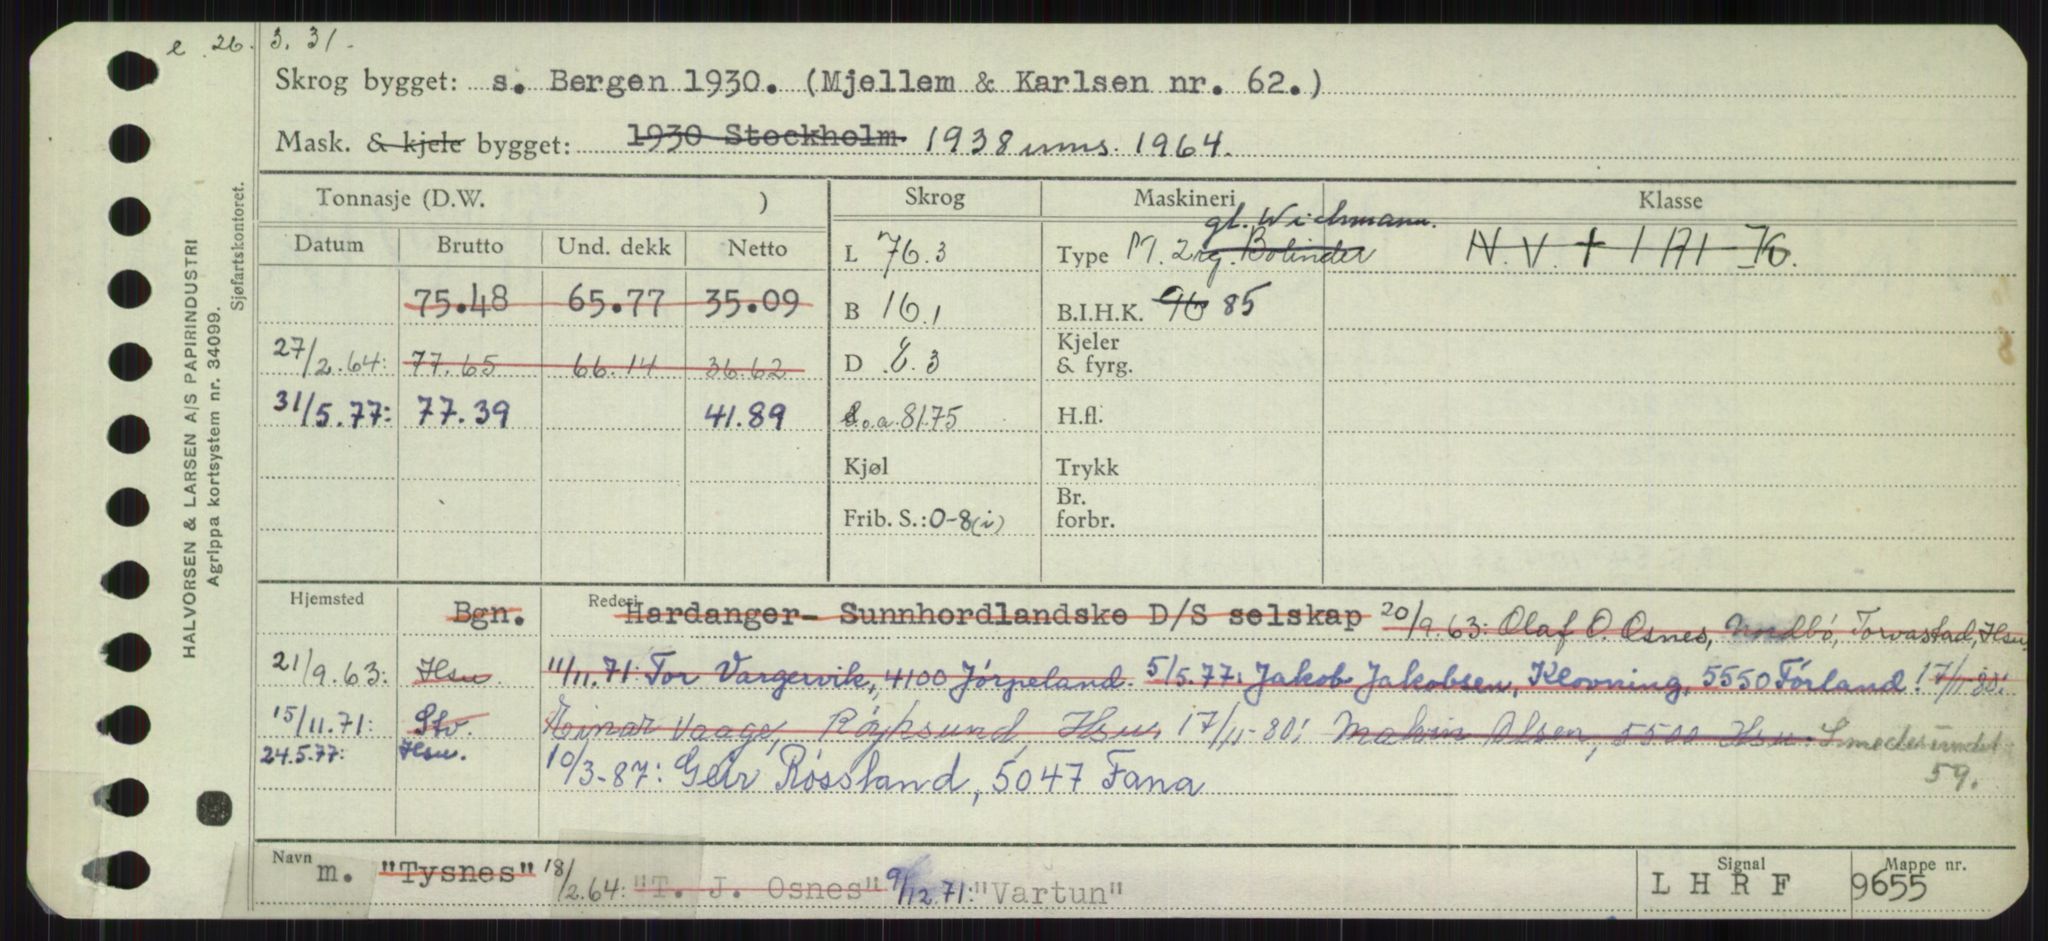 e 26. 3. 31.
Skrog bygget: s. Bergen 1930. (Mjellem & Karlsen nr. 62.)
Mask. & kjele bygget: 1930 Stockholm. 1938 inns. 1964.
HALVORSEN & LARSEN A/S PAPIRINDUSTRI
Agrippa kortsystem nr. 34099.
Sjøfartskontoret.
Tonnasje (D.W. ) Skrog Maskineri Klasse
gl. Wichmann.
Datum Brutto Und. dekk Netto L 76.3 Type M. 2 Bolinder N.V. + 1 A1 K.
75.48 65.77 35.09 B 16.1 B.I.H.K. 90 85
27/2.64: 77.65 66.14 36.62 D 8.3 Kjeler & fyrg.
31/5.77: 77.39 41.89 L.o.a. 81.75 H.fl.
Kjøl Trykk
Frib. S.: 0-8(i) Br. forbr.
Hjemsted Bgn. Rederi Hardanger- Sunnhordlandske D/S selskap 20/9.63: Olaf O. Osnes, Nordbø, Torvastad, Hsu.
21/9.63: Hsu. 11/11.71: Tor Vargervik, 4100 Jørpeland. 5/5.77: Jakob Jakobsen, Klovning, 5550 Førland. 17/11-80:
15/11.71: Stv. Einar Vaage, Røyksund, Hsu, 17/11-80: Malvin Olsen, 5500 Hsu. Smedesundet
24.5.77: Hsu. 10/3-87: Geir Røssland, 5047 Fana 59.
Navn m. "Tysnes" 18/2.64: "T. J. Osnes" 9/12.71: "Vartun" Signal L H R F Mappe nr. 9655